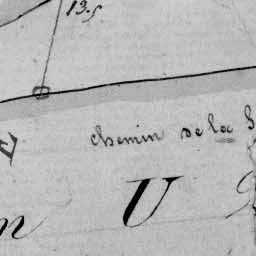 13.5
chemin de la
U